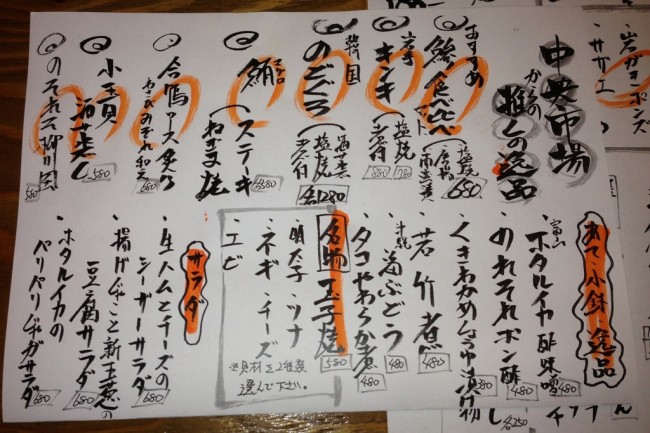 岩ガキポンズ
サザエ
中央市場
からの
推しの逸品
おすすめ
鯵食べ比べ
塩焼
南蛮漬
650
岩手
キンキ
塩焼
780
煮付
880
韓国
のどぐろ
塩焼
煮付
各1280
マグロ
鮪
ステーキ
ねぎま焼
各580
合鴨ロースタタキ
わさびみぞれ和え
680
小貝
酒蒸し
580
のれそれ柳川風
580
あて・小鉢逸品
富山
・ホタルイカ酢味噌
480
・のれそれポン酢
480
・くきわかめしょうゆ漬け
380
・若竹煮
480
・沖縄
海ぶどう
480
・タコやわらか煮
480
名物
玉子焼
580
・明太子・ツナ
・ネギ・チーズ
・エビ
※具材を2種類
選んで下さい。
サラダ
・生ハムとチーズの
シーザーサラダ
680
・揚げじゃこと新玉葱の
豆腐サラダ
680
・ホタルイカの
パリパリじゃがサラダ
680
各250